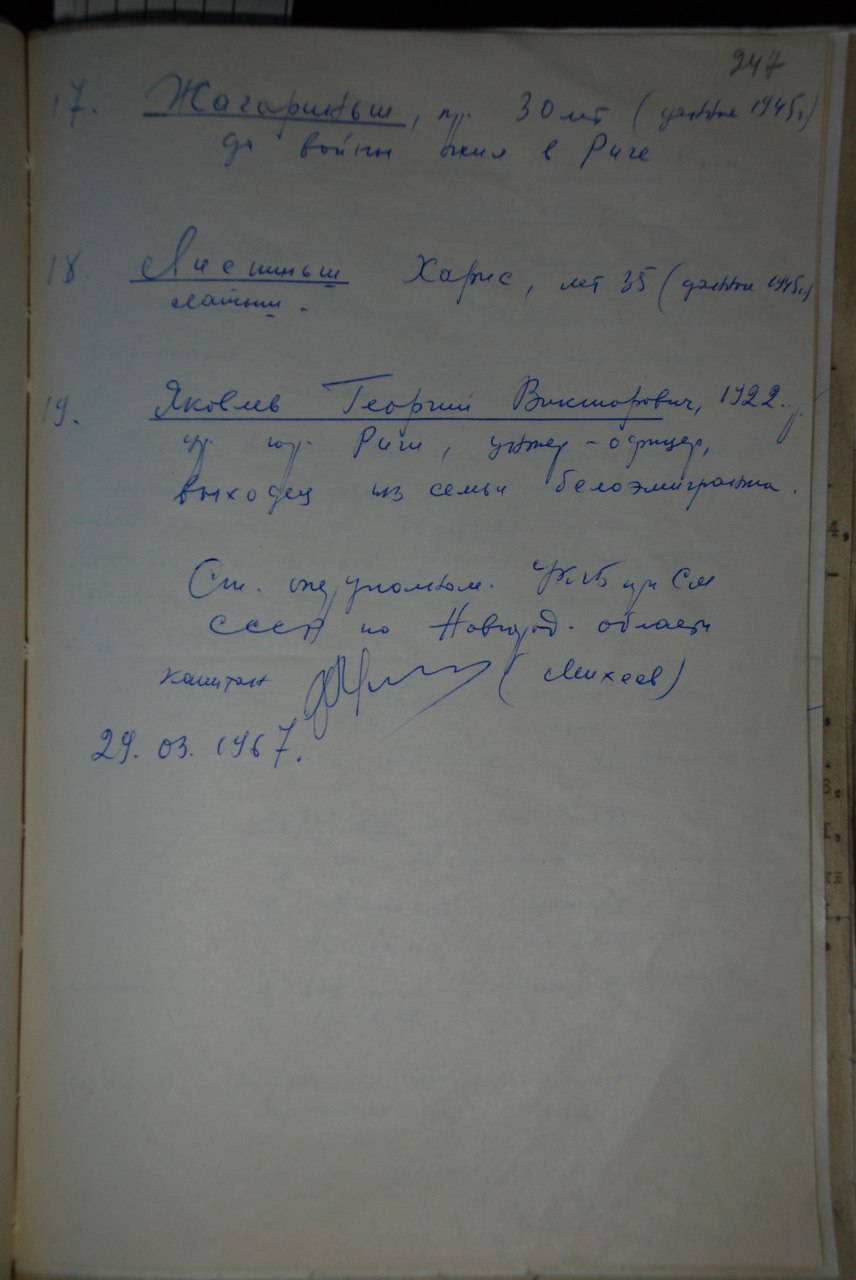 247
17. Жагариньш, пр. 30 лет (данные 1945 г.)
до войны жил в Риге
18. Лиепиньш Харис, лет 35 (данные 1945 г.)
латыш.
19. Яковлев Георгий Викторович, 1922 г.
ур. гор. Риги, унтер-офицер,
выходец из семьи белоэмигранта.
Ст. оперуполном. УКГБ при См
СССР по Новгород. области
капитан (Михеев)
29.03.1967.